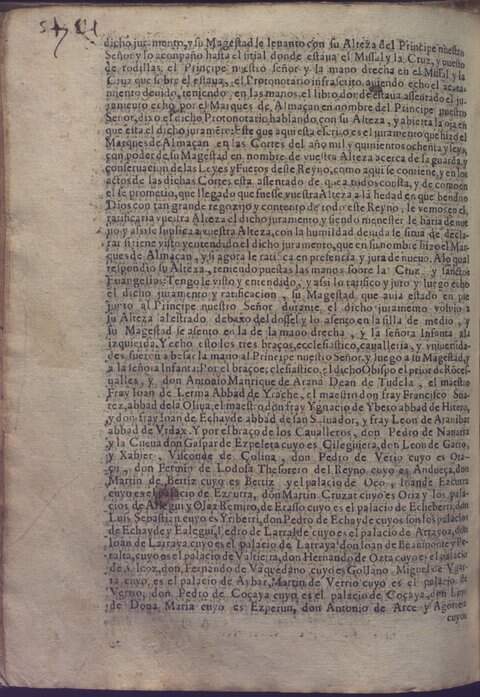 dicho juramento, y su Magestad se leuanto con su Alteza del Principe nuestro
Señor y lo acompaño hasta el sitial donde estaua el Missal y la Cruz, y puesto
de rodillas, el Principe nuestro señor y la mano drecha en el Missal y la
Cruz que sobre el estaua, el Protonotario infrascrito, auiendo echo el acata-
miento deuido, teniendo, en las manos, el libro, donde estaua assentado el ju-
ramento echo por el Marques de Almaçan en nombre del Principe nuestro
Señor, dixo el dicho Protonotario, hablando con su Alteza, y abierta la oja en
que esta el dicho juramẽto: Este que aqui esta escrito es el juramento que hizo el
Marques de Almaçan en las Cortes del año mil y quinientos ochenta y seys,
con poder de su Magestad en nombre de vuestra Alteza acerca de la guarda, y
conseruacion de las Leyes y Fueros deste Reyno, como aqui se contiene, y en los
actos de las dichas Cortes, esta assentado de que a todos consta, y de como en
el se prometio, que llegado que fuesse vuestra Alteza a la hedad en que bendito
Dios con tan grande regozijo y contento de todo este Reyno, le vemos en el,
ratificaria vuestra Alteza el dicho juramento y siendo menester le haria de nue-
uo, y assi se suplica a vuestra Alteza, con la humildad deuida se sirua de decla-
rar si tiene visto y entendido el dicho juramento, que en su nombre hizo el Mar-
ques de Almaçan, y si agora le ratifica en presencia, y jura de nueuo. A lo qual
respondio su Alteza, teniendo puestas las manos sobre la Cruz y sanctos
Euangelios: Tengo le visto y entendido, y assi lo ratifico y juro y luego echo
el dicho juramento y ratificacion, su Magestad que auia estado en pie
junto al Principe nuestro Señor durante el dicho juramento voluio a
su Alteza al estrado debaxo del dossel y lo assento en la silla de medio, y
su Magestad se assento en la de la mano drecha, y la señora Infanta a la
izquierda. Y echo esto los tres braços, ecclesiastico, caualleria, y vniuersida-
des, fueron a besar la mano al Principe nuestro Señor, y luego a su Magestad, y
a la señora Infanta: Por el braço ecclesiastico, el dicho Obispo el prior de Ronces-
ualles, y don Antonio Manrique de Arana Dean de Tudela, el maestro
Fray Ioan de Lerma Abbad de Yrache, el maestro don fray Francisco Sua-
rez, abbad de la Oliua, el maestro don fray Ygnacio de Ybero abbad de Hitero,
y don fray Ioan de Echayde abbad de san Saluador, y fray Leon de Aranibar
abbad de Vrdax. Y por el braço de los Caualleros, don Pedro de Nauarra
y la Cueua don Gaspar de Ezpeleta cuyo es Celigueta, don Leon de Garro,
y Xabier, Vizconde de Çolina, don Pedro de Verio cuyo es Ota-
çu, don Fermin de Lodosa Thesorero del Reyno, cuyo es Andueça, don
Martin de Bertiz cuyo es Bertiz y el palacio de Oco, Ioan de Ezcurra
cuyo es el palacio de Ezcurra, don Martin Cruzat cuyo es Oriz y los pala-
cios de Amegui y Olaz Remiro, de Erasso cuyo es el palacio de Echeberri, don
Luis Sebastian cuyo es Yriberri, don Pedro de Echayde cuyos son los palacios
de Echayde y Ealegui, Pedro de Larralde cuyo es el palacio de Artaçoz, don
Ioan de Larraya cuyo es el palacio de Larraya don Ioan de Beaumonte y Pe-
ralta, cuyo es el palacio de Valtierra, don Hernando de Oxta cuyo es el palacio
de don Fernando de Vaquedano cuyo es Gollano, Miguel de
cuyo, es el palacio de Aybar, Martin de Verrio cuyo es el palacio de
Verrio, don Pedro de Coçaya cuyo es el palacio de Coçaya, don Leon
de Doña Maria cuyo es Ezperun, don Antonio de Arce y Agorreta
cuyos